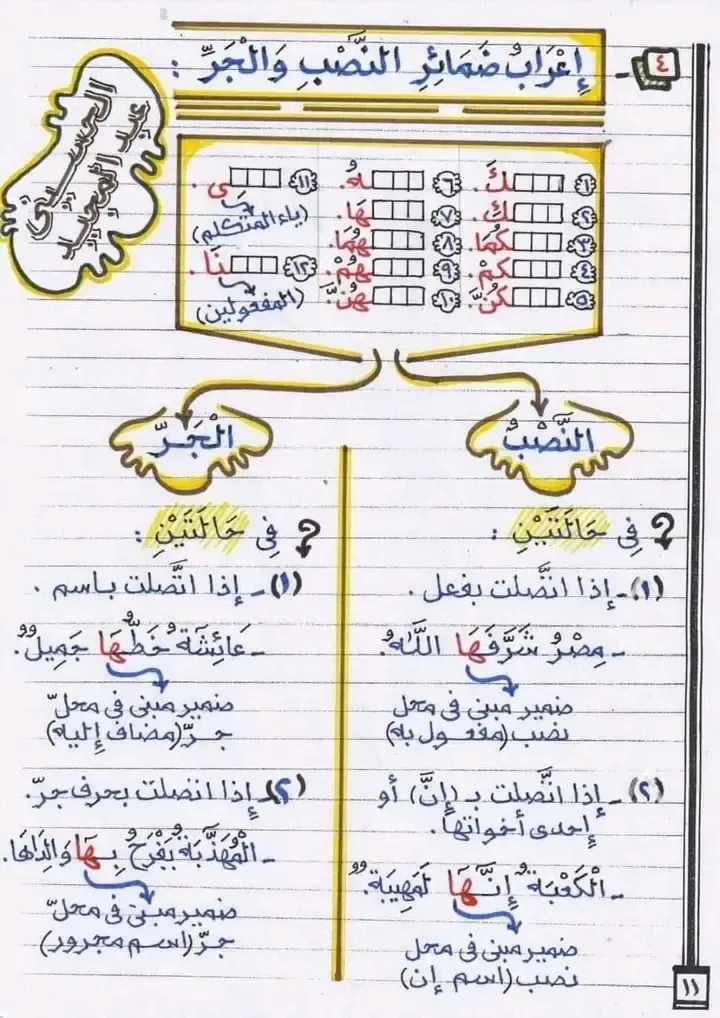 ٤ - إِعْرَابُ ضَمَائِرِ النَّصْبِ وَالْجَرِّ :
عبد المجيد
الحسـنى
١ ـكَ .
٢ ـكِ .
٣ ـكُمَا .
٤ ـكُمْ .
٥ ـكُنَّ .
٦ ـهُ .
٧ ـهَا .
٨ ـهُمَا .
٩ ـهُمْ .
١٠ ـهُنَّ .
١١ ـى .
(ياء المتكلم)
١٢ ـنَا .
(المفعولين)
النَّصْبُ
فِى حَالَتَيْنِ :
(١) - إذا اتَّصلت بفعل .
- مِصْرُ شَرَّفَهَا اللَّهُ .
ضمير مبنى فى محل
نصب (مفعول به)
(٢) - إذا اتَّصلت بـ (إِنَّ) أو
إحدى أخواتها .
- الْكَعْبَةُ إِنَّهَا لَمَهِيبَةٌ .
ضمير مبنى فى محل
نصب (اسم إن)
الْجَـرِّ
فِى حَالَتَيْنِ :
(١) - إذا اتَّصلت باسم .
- عَائِشَةُ خَطُّهَا جَمِيلٌ .
ضمير مبنى فى محلّ
جرّ (مضاف إليه)
(٢) - إذا اتصلت بحرف جرّ .
- الْمُهَذَّبَةُ يَفْرَحُ بِـهَا وَالِدَاهَا .
ضمير مبنى فى محلّ
جرّ (اسم مجرور)
١١